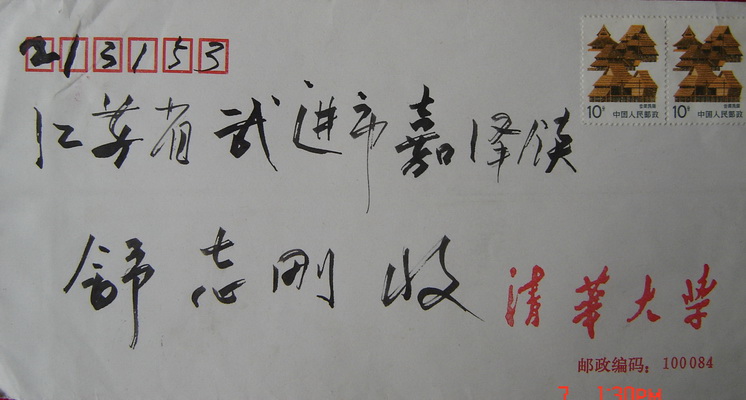 213153
10分 中国人民邮政
10分 中国人民邮政
江苏省武进市嘉泽镇
舒志刚 收
清华大学
邮政编码：100084
7 1:30PM